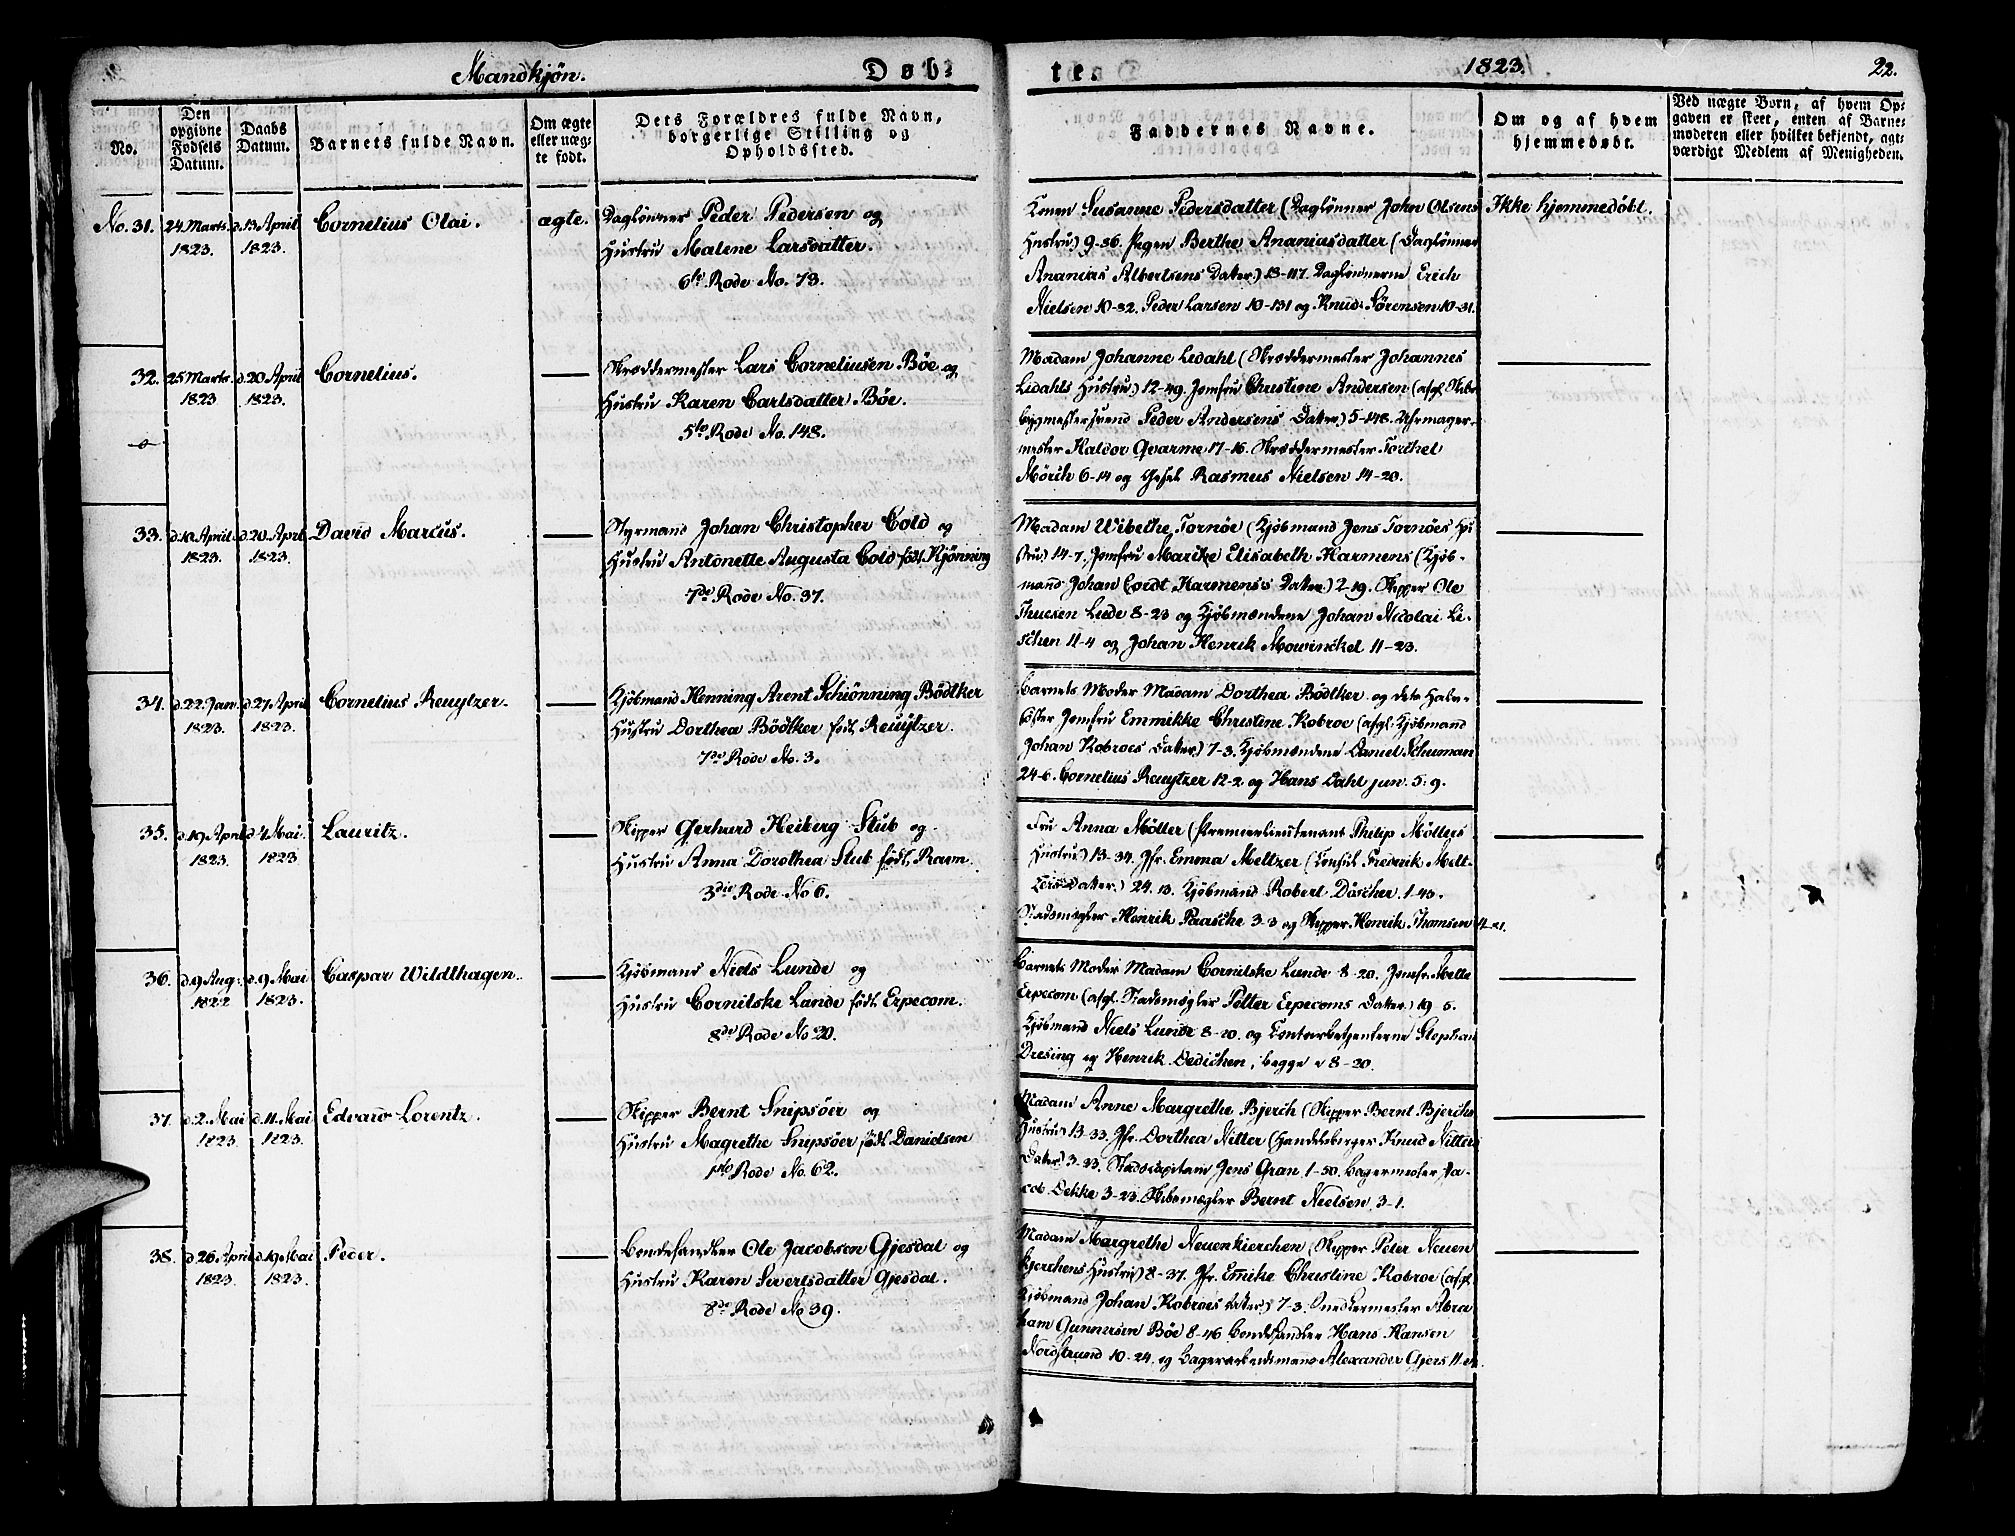 Mandkjøn. Døb- te. 1823. 22.
No.
Den opgivne Fødsels Datum.
Daabs Datum.
Barnets fulde Navn.
Om ægte eller nægte født.
Dets Forældres fulde Navn, borgerlige Stilling og Opholdssted.
Faddernes Navne.
Om og af hvem hjemmedøbt.
Ved nægte Børn, af hvem Opgaven er skeet, enten af Barnemoderen eller hvilket bekjendt, agtværdigt Medlem af Menigheden.
No. 31. 24 Marts 1823. d. 13 April 1823. Cornelius Olai. ægte.
Daglønner Peder Pedersen og
Hustru Malene Larsdatter.
6te Rode No. 73.
Konen Susanne Pedersdatter (Daglønner John Olsens
Hustru) 9-36. Pigen Berthe Ananiasdatter (Daglønner
Ananias Albertsens Datter.) 18-117. Daglønnerne Erich
Nielsen 10-32. Peder Larsen 10-131 og Knud Sørensen 10-31.
Ikke hjemmedøbt.
32. 25 Marts 1823 d. 20 April 1823. Cornelius. —
Skræddermester Lars Corneliusen Bøe og
Hustru Karen Carlsdatter Bøe.
5te Rode No. 148.
Madam Johanne Lidahl (Skræddermester Johannes
Lidahls Hustru) 12-49. Jomfru Christine Andersen (afgl. Skibs
bygmestersvend Peder Andersens Datter) 5-148. Uhrmager-
mester Haldor Qvarme 17-16. Skræddermester Torchel
Mörch 6-14 og Gesel Rasmus Nielsen 14-20.
33. d. 12 April 1823. d. 20 Apri 1823. David Marcus. —
Styrmand Johan Christopher Cold og
Hustru Antonette Augusta Cold født Kjønning
7de Rode No. 37.
Madam Wibethe Tornøe (Kjøbmand Jens Tornøes Hu
stru) 14-7. Jomfru Marike Elisabeth Harmens (Kjøb-
mand Johan Cordt Harmensis Datter) 2-19. Skipper Ole
Thuesen Lude 8-23 og Kjøbmændene Johan Nicolai Li-
schen 11-4 og Johan Henrik Mowinckel 11-23.
34. d. 22 Jan. 1823. d. 27 April 1823. Cornelius Reuytzer. —
Kjøbmand Henning Arent Schiønning Bödtker
Hustru Dorthea Bödtker født Reuytzer.
7de Rode No. 3.
Barnets Moder Madam Dorthea Bödtker og dets Halv-
söster Jomfru Emmikke Christine Kobroe (afgl. Kjøbmand
Johan Kobroes Datter) 7-3. Kjøbmændene Daniel Schuman
24-6. Cornelius Reuytzer 12-2 og Hans Dahl jun. 5-9.
35. d. 19 April 1823. d. 4 Mai 1823. Lauritz. —
Skipper Gerhard Heiberg Stub og
Hustru Anna Dorothea Stub født Ravn.
3die Rode No 6.
Fru Anna Möller (Premierlieutenant Philip Möllers
Hustru) 13-34. Jfr. Emma Meltzer (Consul Frederik Melt-
zers Datter.) 24. 13. Kjøbmand Robert Döscher 1-43.
Stadsmægler Henrik Paasche 3-3 og Skipper Henrik Thomsen 4-21.
36. d. 9 Aug: 1822 d. 9 Mai 1823. Caspar Wildthagen. —
Kjøbmand Niels Lunde og
Hustru Cornilske Lunde født Erpecom.
8de Rode No 20.
Barnets Moder Madam Cornilske Lunde 8-20. Jomfr. Mette
Erpecom (afgl. Stadsmægler Petter Erpecoms Datter.) 19-5.
Kjøbmand Niels Lunde 8-20. og Contoirbetjenterne Stephan
Dresing og Henrik Dedichen, begge i 8-20.
37. d. 2. Mai 1823. d. 11. Mai 1823. Edvard Lorentz. —
Skipper Bernt Snipsöer og
Hustru Magrethe Snipsöer født Danielsen
1ste Rode No. 62.
Madam Anne Margrethe Bjerch (Skipper Bernt Bjerchs
Hustru) 13-33. Jfr. Dorthea Nitter (Handelsborger Knud Nitters
Datter) 3-23. Stadscapitain Jens Gran 1-50. Bagermester Ja-
cob Dekke 3-23. Skibsmægler Bernt Nielsen 3-1.
38. d. 26. April 1823. d. 19. Mai 1823. Peder. —
Bondehandler Ole Jacobsen Gjesdal og
Hustru Karen Sivertsdatter Gjesdal.
8de Rode No 39.
Madam Margrethe Neuenkierchen (Skipper Peter Neuen
kjerchens Hustru) 8-37. Jfr. Emike Christine Kobroe (afgl.
Kjøbmand Johan Kobroes Datter.) 7-3. Snedkermester Abra
ham Gunnersen Böe 8-46 Bondehandler Hans Hansen
Nordstrund 10-24. og Bagersvendsmand Alexander Gjers 11.